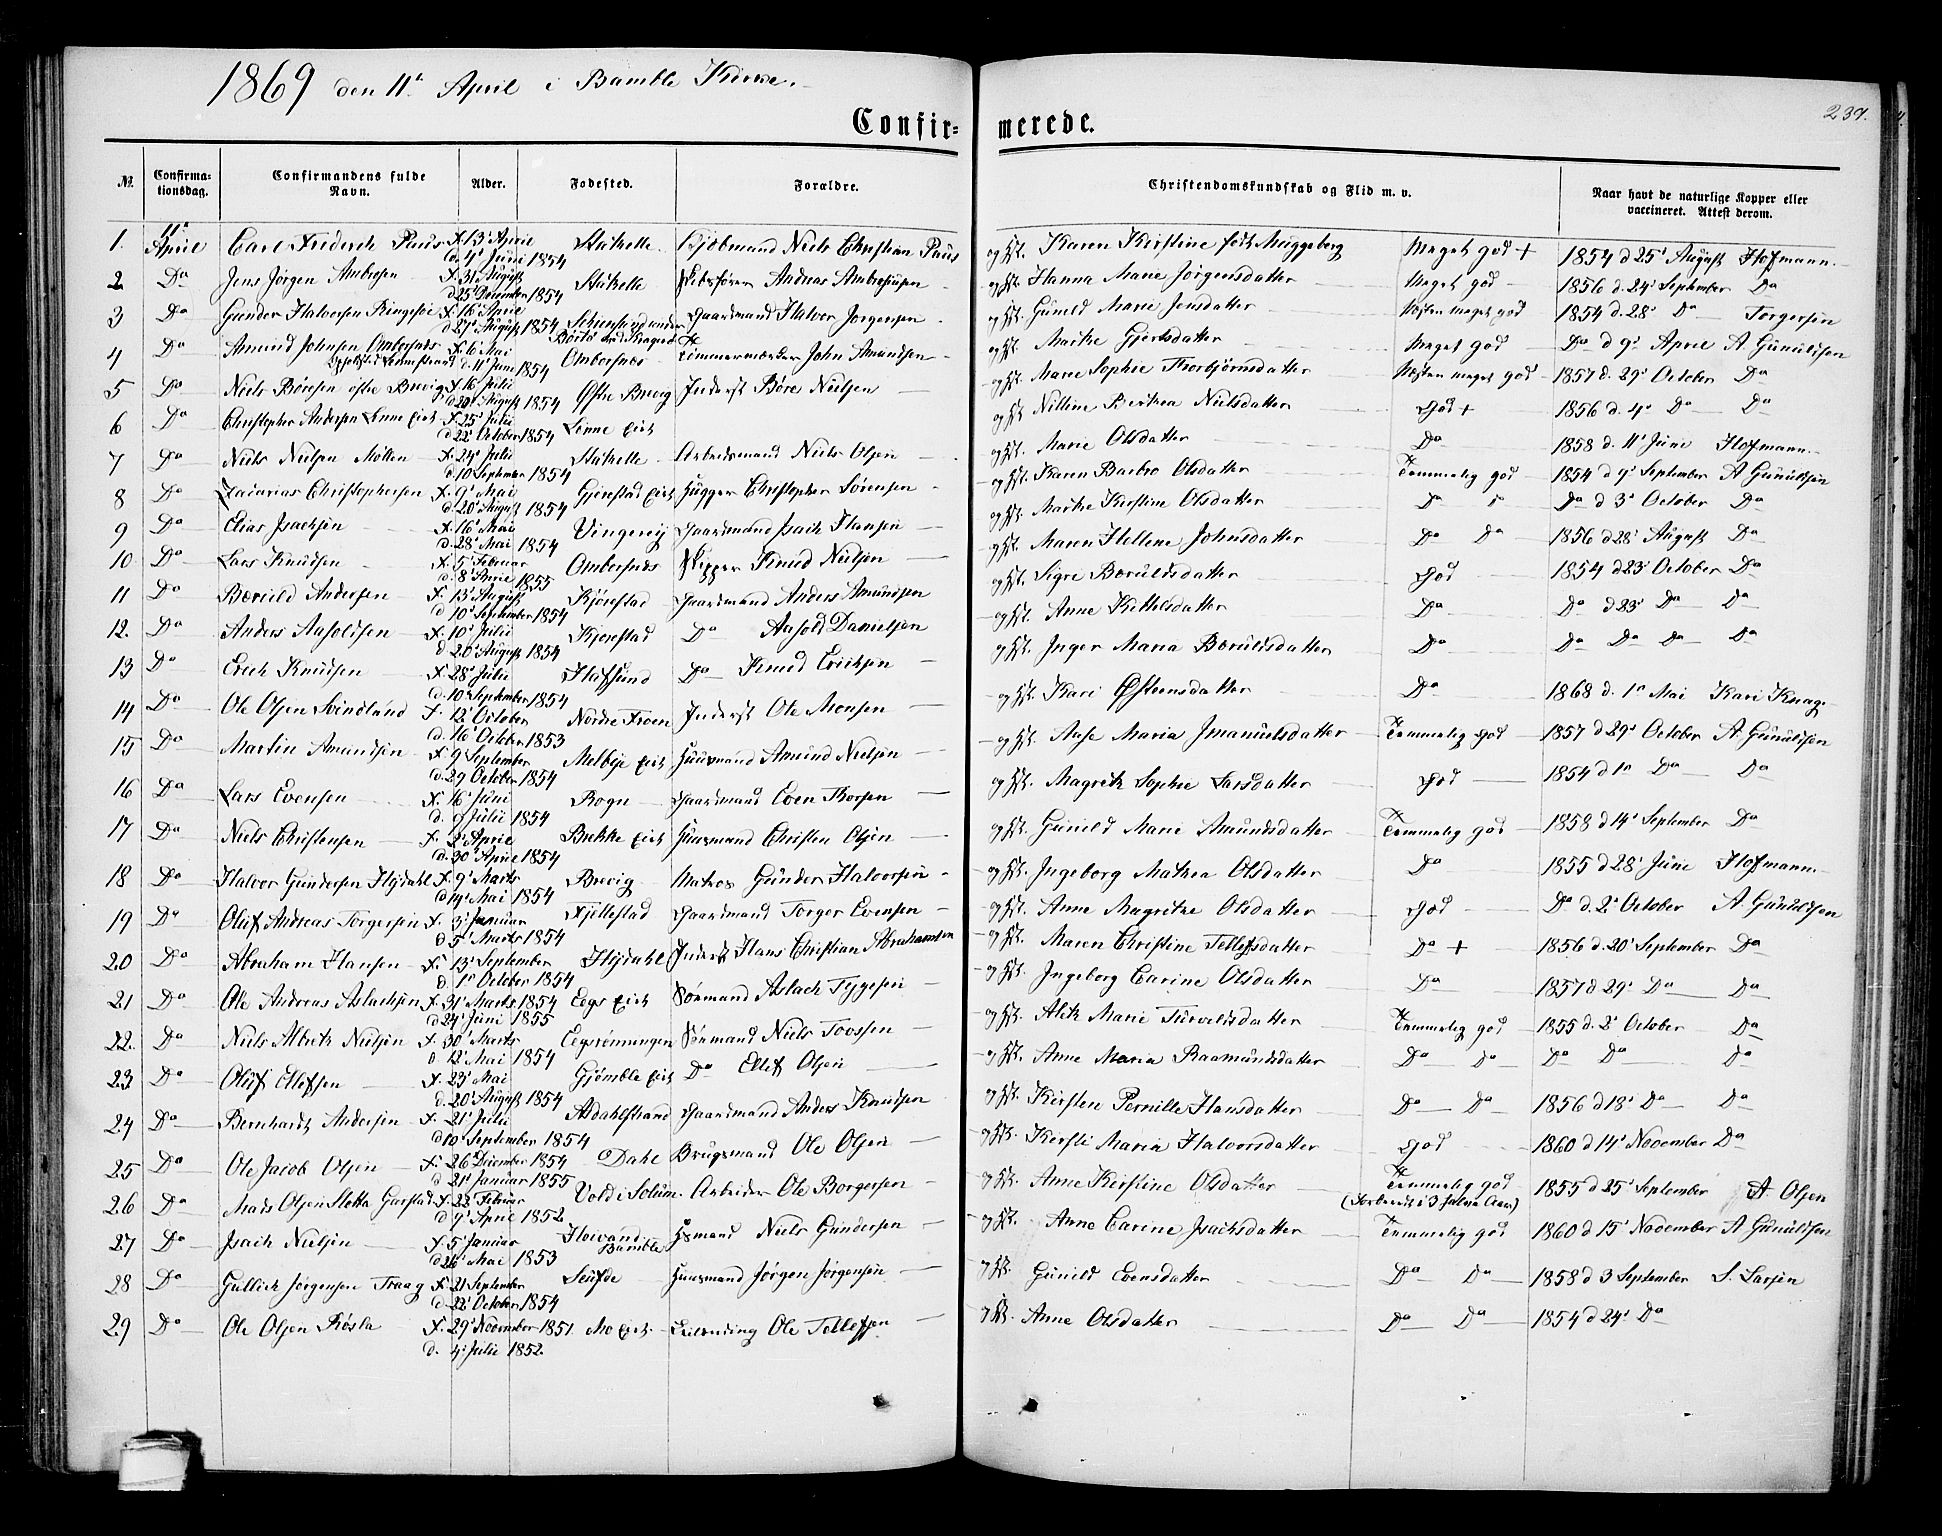 1869 den 11te April i Bamble Kirke.
237.
Confir= merede.
No. Confirma-tionsdag. Confirmandens fulde Navn. Alder. Fødested. Forældre. Christendomskundskab og Flid m. v. Naar havt de naturlige Kopper eller vaccineret. Attest derom.
1. 11te April Carl Frederik Paus f. 13 April d. 4 Juni 1854 Stathelle Kjøbmand Niels Christian Paus og Hst. Karen Kirstine født Muggeborg Meget god + 1854 d 25 August Hofmann.
2 Do Jens Jørgen Ambrosen f. 31 August d 25 December 1854 Stathelle Skibsfører Andreas Ambrosiusen og Hst. Hanna Marie Jørgensdatter Meget god 1856 d. 24 September Do
3 Do Gunder Halvorsen f. 16 April d 27 August 1854 Gaardmand Halvor Jørgensen og Hst. Gunild Marie Jensdatter Næsten meget god 1854 d. 28 Do Torgersen
4 Do Amund Johnsen Ombersnæs f. 6 Mai d. 11 Juni 1854 Ombersnæs Tømmermand John Amundsen og Hst. Marthe Gjertsdatter Meget god Do d 9 April A Gunuldsen
5 Do Niels Børesen østre Brevig f. 16 Julii d 20 August 1854 Østre Brevig Inderst Børe Nielsen og Hst. Marie Sophie Thorbjørnsdatter Næsten meget god 1857 d. 29 October Do
6 Do Christopher Andersen Linne Eiet f. 25 Julii d 22 October 1854 Linne Eiet og Hst. Nilline Berthea Nielsdatter God + 1856 d. 4 Do Do
7 Do Niels Nielsen Møllen f. 24 Julii d. 10 September 1854 Stathelle Arbeidsmand Niels Olsen og Hst. Marie Olsdatter Do 1858 d. 11 Juni Hofmann
8 Do Zacarias Christophersen f. 9 Mai d. 20 August 1854 Gjerestad Eiet Hugger Christopher Sørensen og Hst. Karen Barbro Olsdatter Temmelig god 1854 d 9 September A Gunuldsen
9 Do Elias Isachsen f. 16 Mai d. 28 Mai 1854 Vingereij Gaardmand Isach Hansen og Hst. Marthe Kirstine Olsdatter Do Do d 3 October Do
10 Do Lars Knudsen f. 5 Februar d. 8 April 1855 Ombersnæs Skipper Knud Nielsen og Hst. Maren Hellene Johnsdatter Do Do 1856 d 28 August Do
11 Do Bæruld Andersen f. 13 August d 10 September 1854 Kjørestad Gaardmand Anders Amundsen og Hst. Sigre Bæruldsdatter God 1854 d 23 October Do
12. Do Anders Aasoldsen f. 10 Julii d 20 August 1854 Kjørestad Do Aasold Danielsen og Hst. Anne Kittelsdatter Do Do d 23 Do Do
13 Do Erich Knudsen f. 28 Julii d. 10 September 1854 Hafsund Do Knud Erichsen og Hst. Inger Maria Bæruldsdatter Do Do Do Do Do
14 Do Ole Olsen Svindland f. 12 October d. 16 October 1853 Nordre Froen Inderst Ole Monsen og Hst. Kari Østensdatter Do 1868 d. 1 Mai Kari Knage
15 Do Martin Amundsen f. 9 September d. 29 October 1854 Melbye Eiet Huusmand Amund Nielsen og Hst. Aase Maria Imanuelsdatter Temmelig god 1857 d 29 October A Gunuldsen
16 Do Lars Evensen f. 16 Juni d. 9 Julii 1854 Rogn Gaardmand Even Thorsen og Hst. Magrethe Sophie Larsdatter God 1854 d 1 Do Do
17 Do Niels Christensen f. 2 April d. 30 April 1854 Bakke Eiet Huusmand Christen Olsen og Hst. Gunild Marie Amundsdatter Temmelig god 1858 d 14 September Do
18 Do Halvor Gundersen Hydahl f. 9 Marts d 14 Mai 1854 Brevig Matros Gunder Halvorsen og Hst. Ingeborg Mathea Olsdatter Do 1855 d 28 Juni Hofmann.
19 Do Oluf Andreas Torgersen f. 3 Januar d 5 Marts 1854 Fjellestad Gaardmand Torger Evensen og Hst. Anne Magrethe Olsdatter God Do d. 2 October A Gunuldsen
20 Do Abraham Hansen f. 13 September d. 1 October 1854 Hydahl Inderst Hans Christian Abrahamsen og Hst. Maren Christine Tellefsdatter Do + 1856 d. 20 September Do
21 Do Ole Andreas Aslachsen f. 31 Marts 1854 d 24 Juni 1855 Eegs Eiet Sømand Aslach Tygesen og Hst. Ingeborg Carine Olsdatter Do 1857 d 29 Do Do
22. Do Niels Albreth Nielsen f. 30 Marts d 12 Mai 1854 Eegsrønningen Sømand Niels Tovssen og Hst. Aleth Marie Turvildsdatter Temmelig god 1855 d. 2 October Do
23 Do Oluf Ellefsen f. 23 Mai d. 20 August 1854 Gjømble Eiet Do Ellef Olsen og Hst. Anne Maria Raamundsdatter Do Do Do Do Do
24 Do Bernhardt Andersen f. 21 Julii d 10 September 1854 Aadahlstrand Gaardmand Anders Knudsen og Hst. Kirsten Pernille Hansdatter Do Do 1856 d 18 Do Do
25 Do Ole Jacob Olsen f. 26 December 1854 d 21 Januar 1855 Dahl Brugsmand Ole Olsen og Hst. Kirsti Maria Halvorsdatter God 1860 d 14 November Do
26 Do Mads Olsen Slotta Garstad f. 22 Februar d 9 April 1852. Vold i Solum. Arbeider Ole Borgersen og Hst. Anne Kirstine Olsdatter Temmelig god (Forberedt i 3 halve Aar) 1855 d 25 September A. Olsen
27 Do Isach Nielsen f. 5 Januar d 26 Mai 1853 Høivand Bamble Hsmand Niels Gundersen og Hst. Anne Carine Isachsdatter Temmelig god 1860 d 15 November A Gunuldsen
28 Do Gullich Jørgensen Traag f. 21 September d 22 October 1854 Skufde Huusmand Jørgen Jørgensen og Hst. Gunild Evensdatter Do Do 1858 d 3 September S. Larsen
29 Do Ole Olsen Røsla f. 29 November 1851 d. 4 Julii 1852. Mo Eiet Leilending Ole Tellefsen og Hst. Anne Olsdatter Do Do 1854 d 24 Do